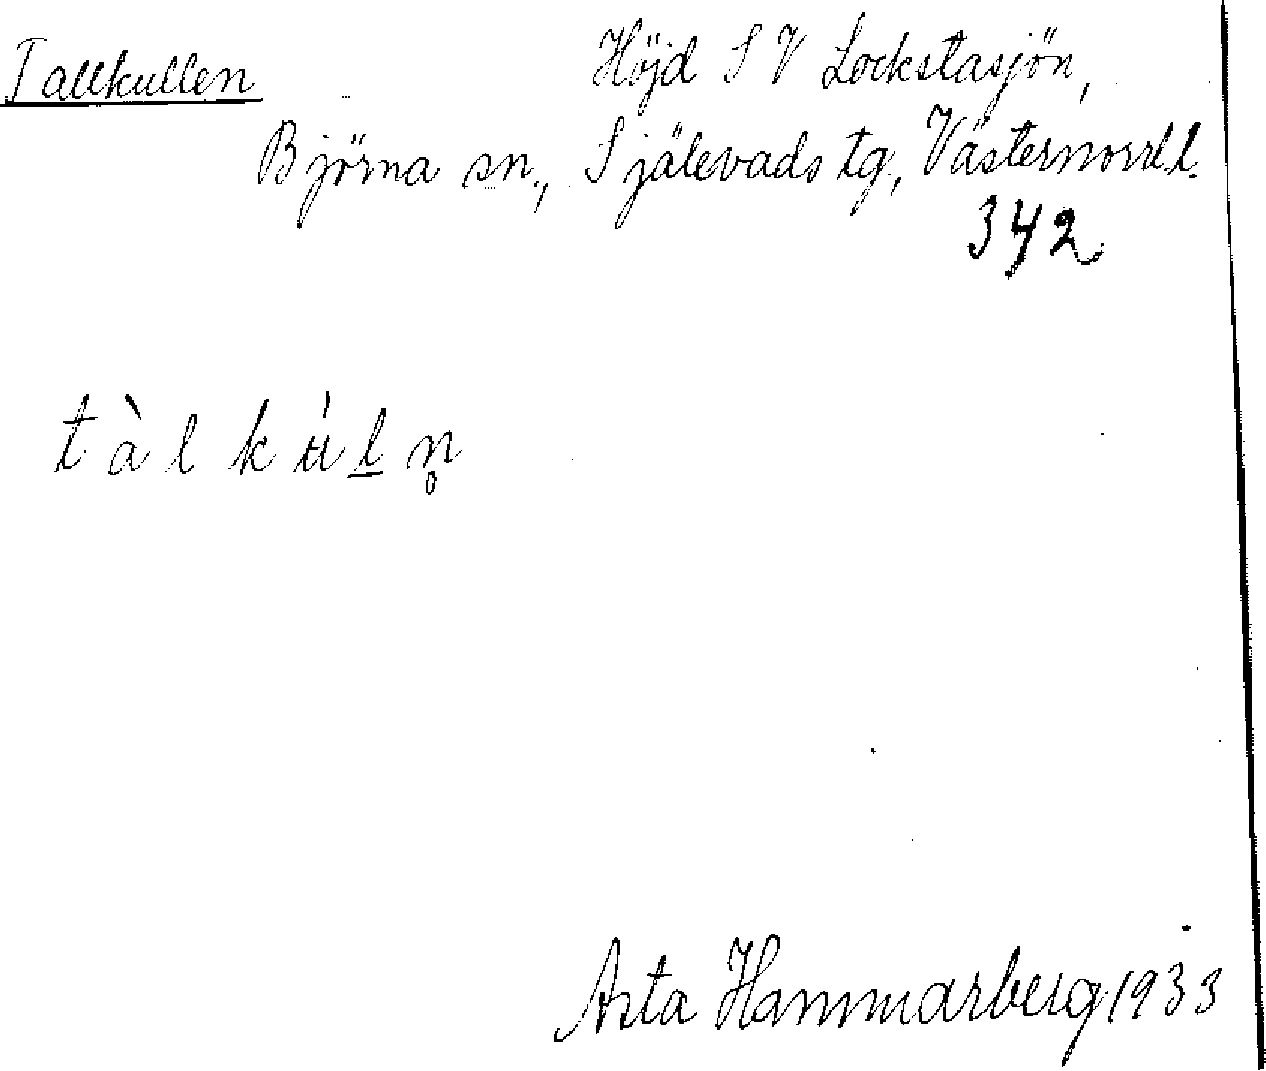 Tallkullen Höjd S V Lockstasjön,
Björna sn., Själevads tg, Västernorrl. l.
342
t à l k ʉ̀ l̲ n̥
Asta Hammarberg 1933